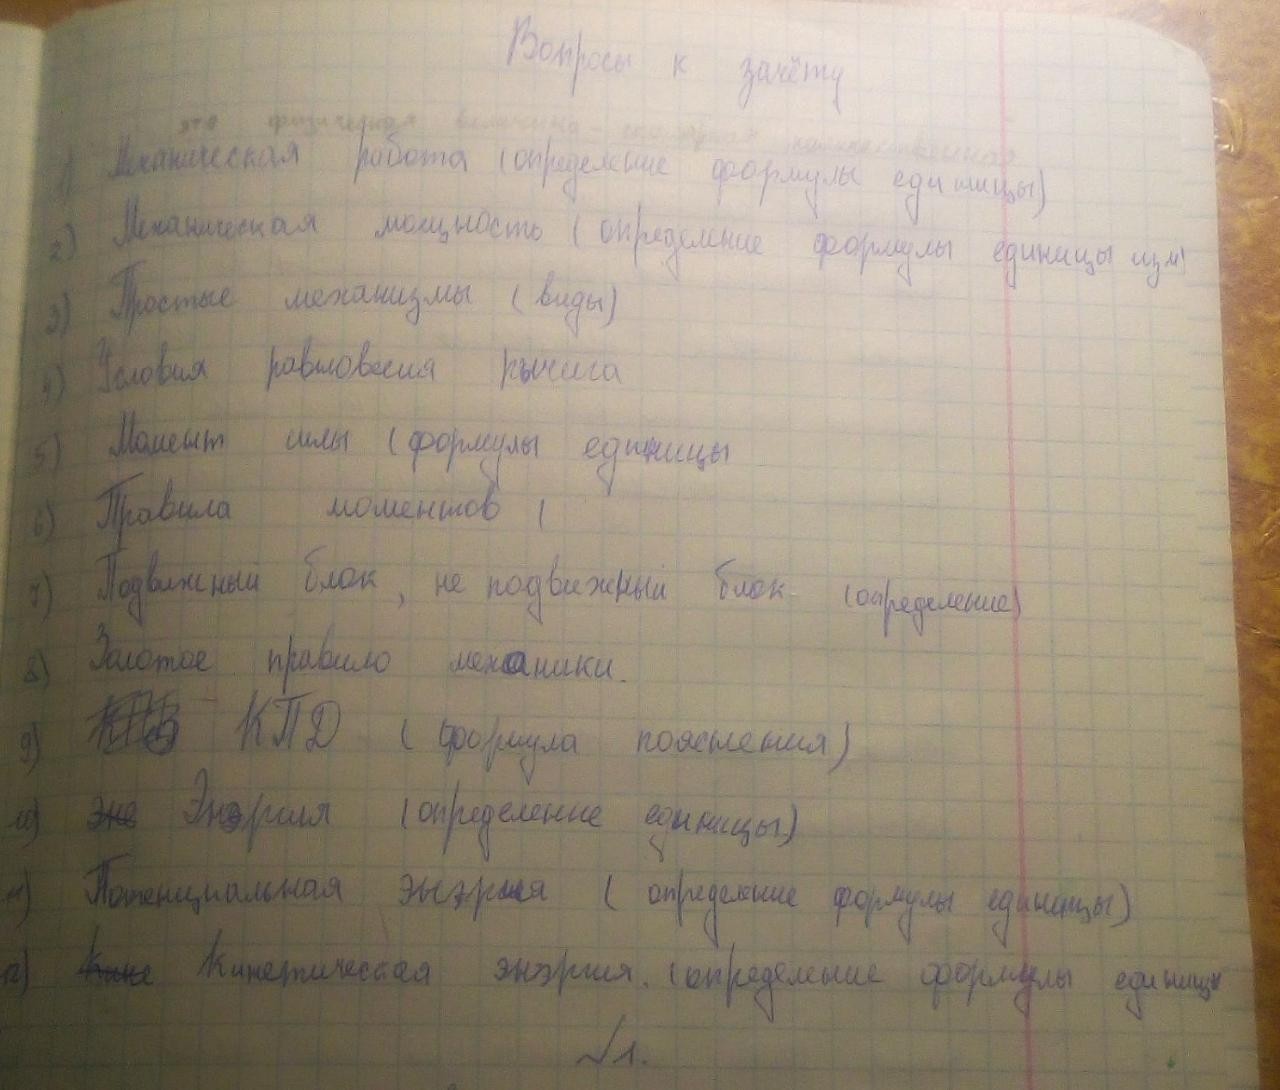 Вопросы к зачёту
это физическая величина
1) Механическая работа (определение формулы единицы)
2) Механическая мощность (определение формулы единицы изм)
3) Простые механизмы (виды)
4) Условия равновесия рычига
5) Момент силы (формулы единицы
6) Правила моментов (
7) Подвижный блок, не подвижный блок (определение)
8) Золотое правило механики.
9) КПД (формула пояснения)
10) эне Энэргия (определение единицы)
11) Потенциальная энэргия (определение формулы единицы)
12) Кине Кинетическая энэргия. (определение формулы единицы
√1.